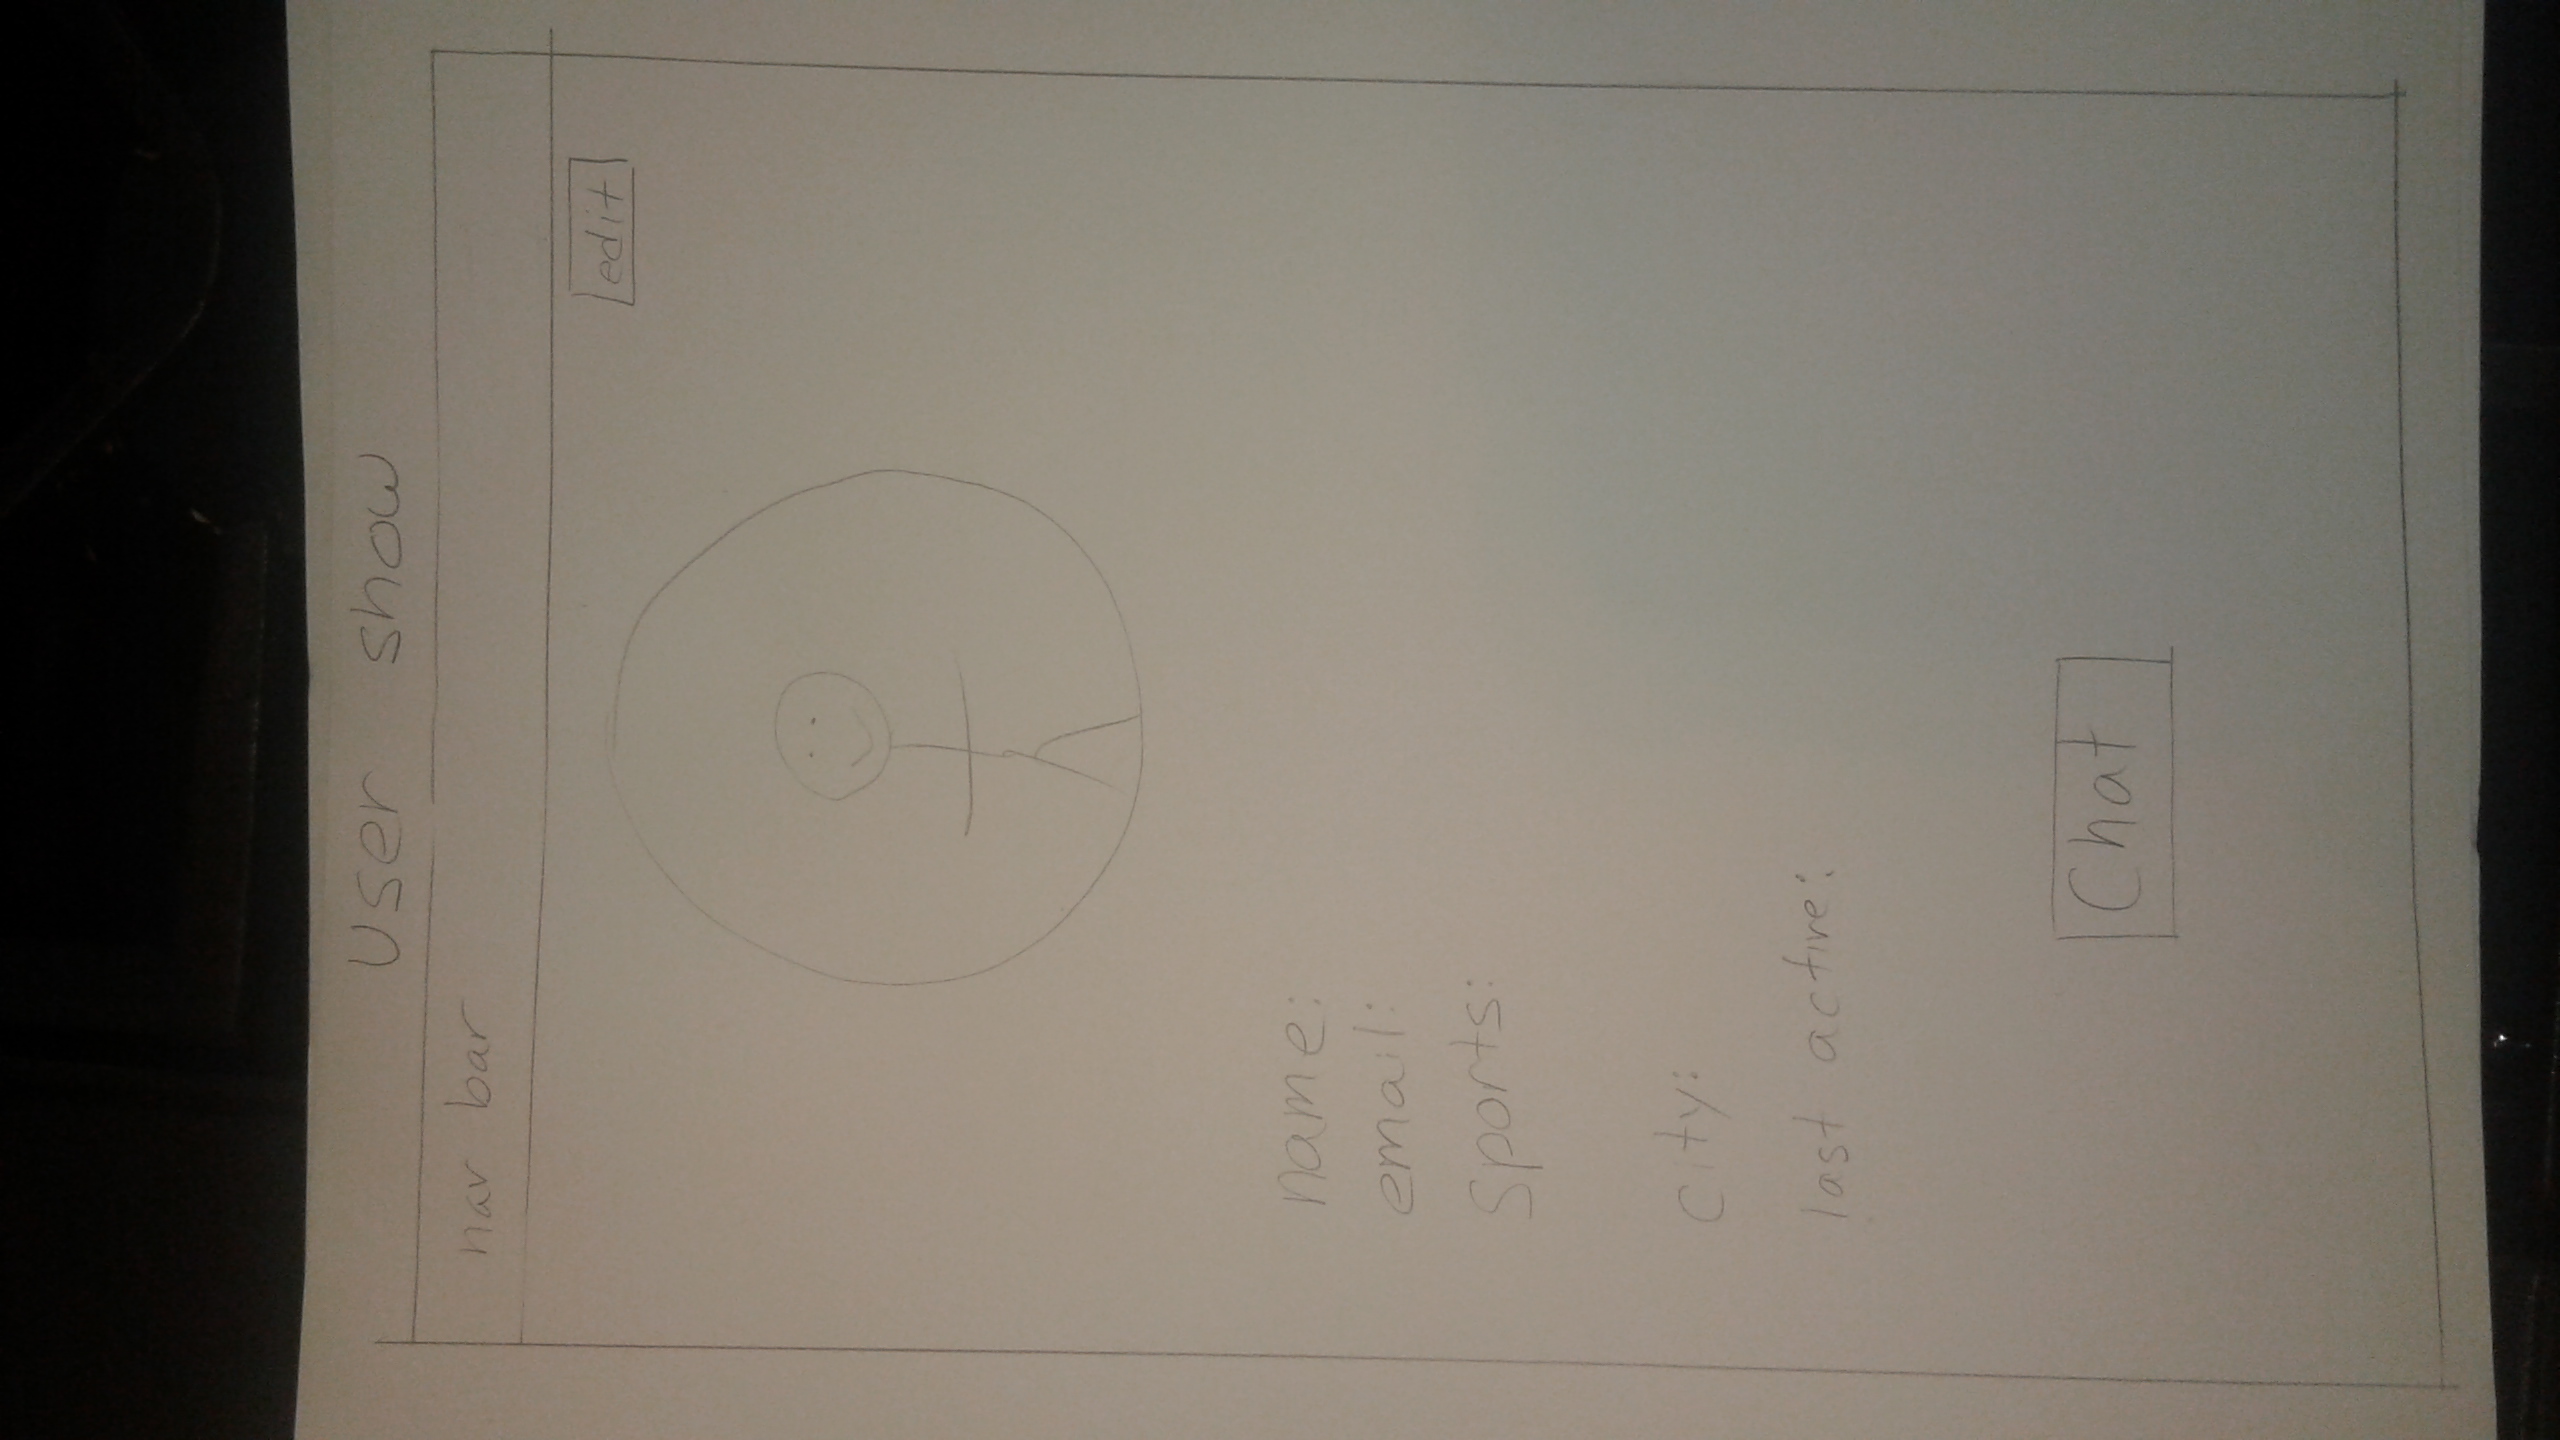 User show
nav bar
edit
name:
email:
Sports:
city:
last active:
Chat